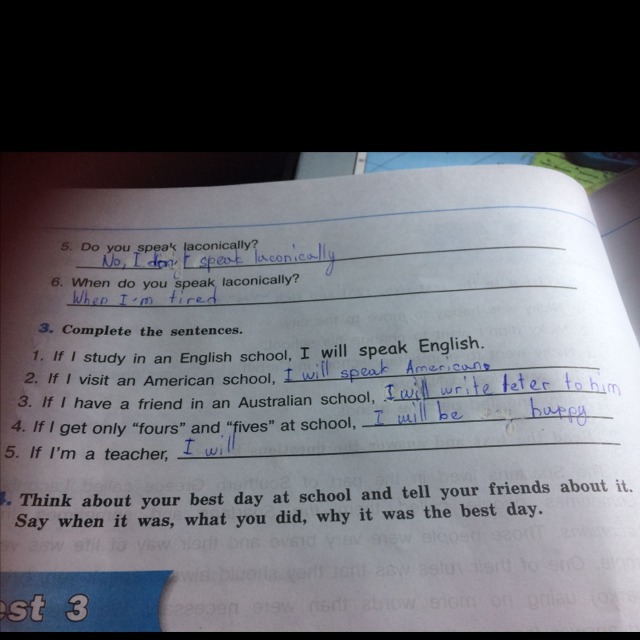 5. Do you speak laconically?
No, I don't speak laconically
6. When do you speak laconically?
When I'm tired
3. Complete the sentences.
1. If I study in an English school, I will speak English.
2. If I visit an American school, I will speak American.
3. If I have a friend in an Australian school, I will write leter to him
4. If I get only “fours” and “fives” at school, I will be happy
5. If I'm a teacher, I will
4. Think about your best day at school and tell your friends about it.
Say when it was, what you did, why it was the best day.
est 3